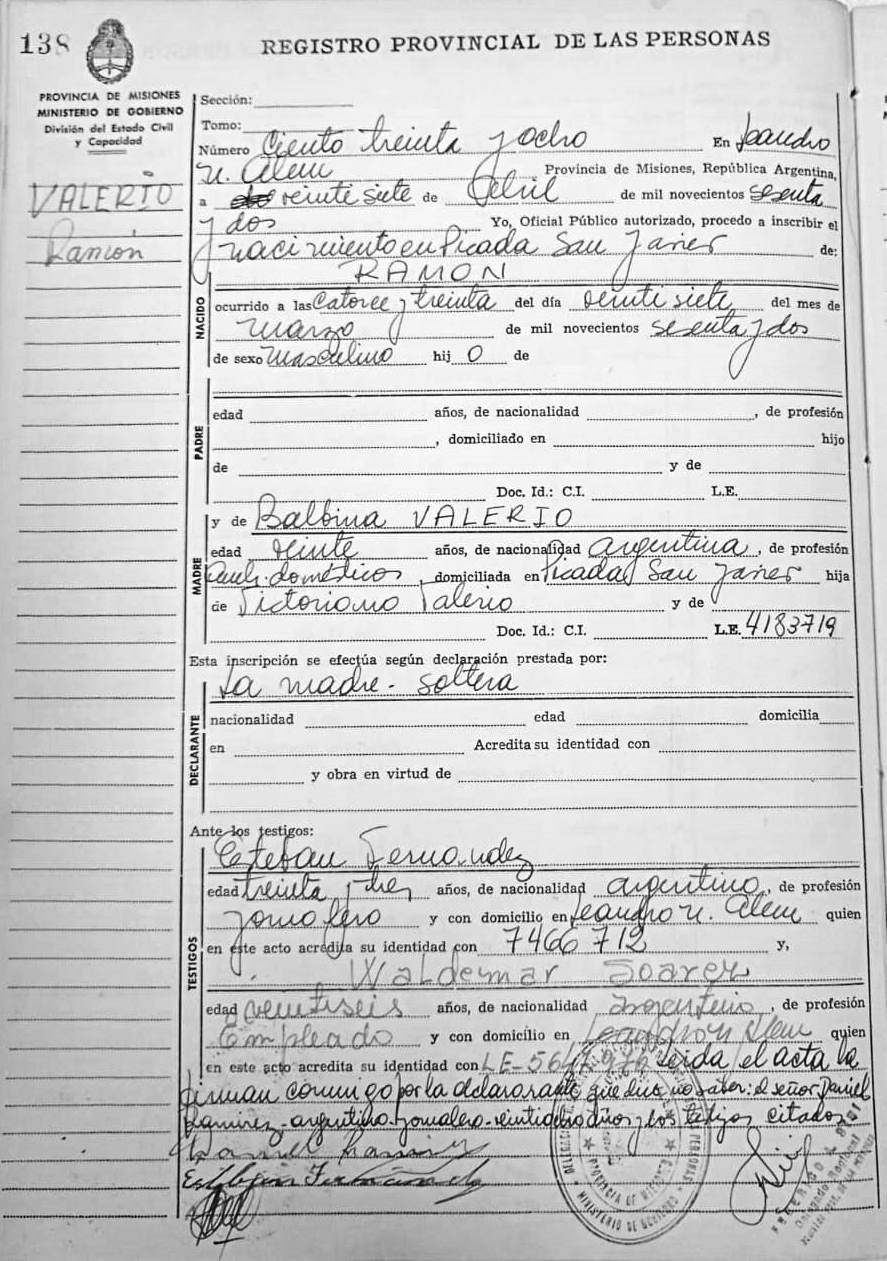 138
REGISTRO PROVINCIAL DE LAS PERSONAS
PROVINCIA DE MISIONES
MINISTERIO DE GOBIERNO
División del Estado Civil
y Capacidad
VALERIO
Ramón
Sección:
Tomo:
Número Ciento treinta y ocho En Leandro
N. Alem Provincia de Misiones, República Argentina,
a veinti siete de Abril de mil novecientos sesenta
y dos Yo, Oficial Público autorizado, procedo a inscribir el
nacimiento en Picada San Javier de:
RAMON
NACIDO
ocurrido a las Catorce y treinta del día veinti siete del mes de
marzo de mil novecientos sesenta y dos
de sexo masculino hij o de
PADRE
edad años, de nacionalidad , de profesión
, domiciliado en hijo
de y de
Doc. Id.: C.I. L.E.
MADRE
y de Balbina VALERIO
edad veinte años, de nacionalidad argentina, de profesión
domésticos, domiciliada en Picada San Javier hija
de Victoriano Valerio y de
Doc. Id.: C.I. L.E. 4183719
Esta inscripción se efectúa según declaración prestada por:
La madre - soltera
DECLARANTE
nacionalidad edad domicilia
en Acredita su identidad con
y obra en virtud de
Ante los testigos:
TESTIGOS
Esteban Fernandez
edad treinta y tres años, de nacionalidad argentino, de profesión
Jornalero y con domicilio en Leandro N. Alem quien
en este acto acredita su identidad con 7466712 y,
Waldemar Soarez
edad veintiseis años, de nacionalidad argentino, de profesión
Empleado y con domicilio en Leandro N Alem quien
en este acto acredita su identidad con LE- leida el acta la
firman conmigo por la declarante que dice no saber: el señor Daniel
Ramirez - argentino - jornalero - veintiocho años y los testigos citados
Daniel Ramirez
Esteban Fernandez
PROVINCIA DE MISIONES
MINISTERIO DE GOBIERNO